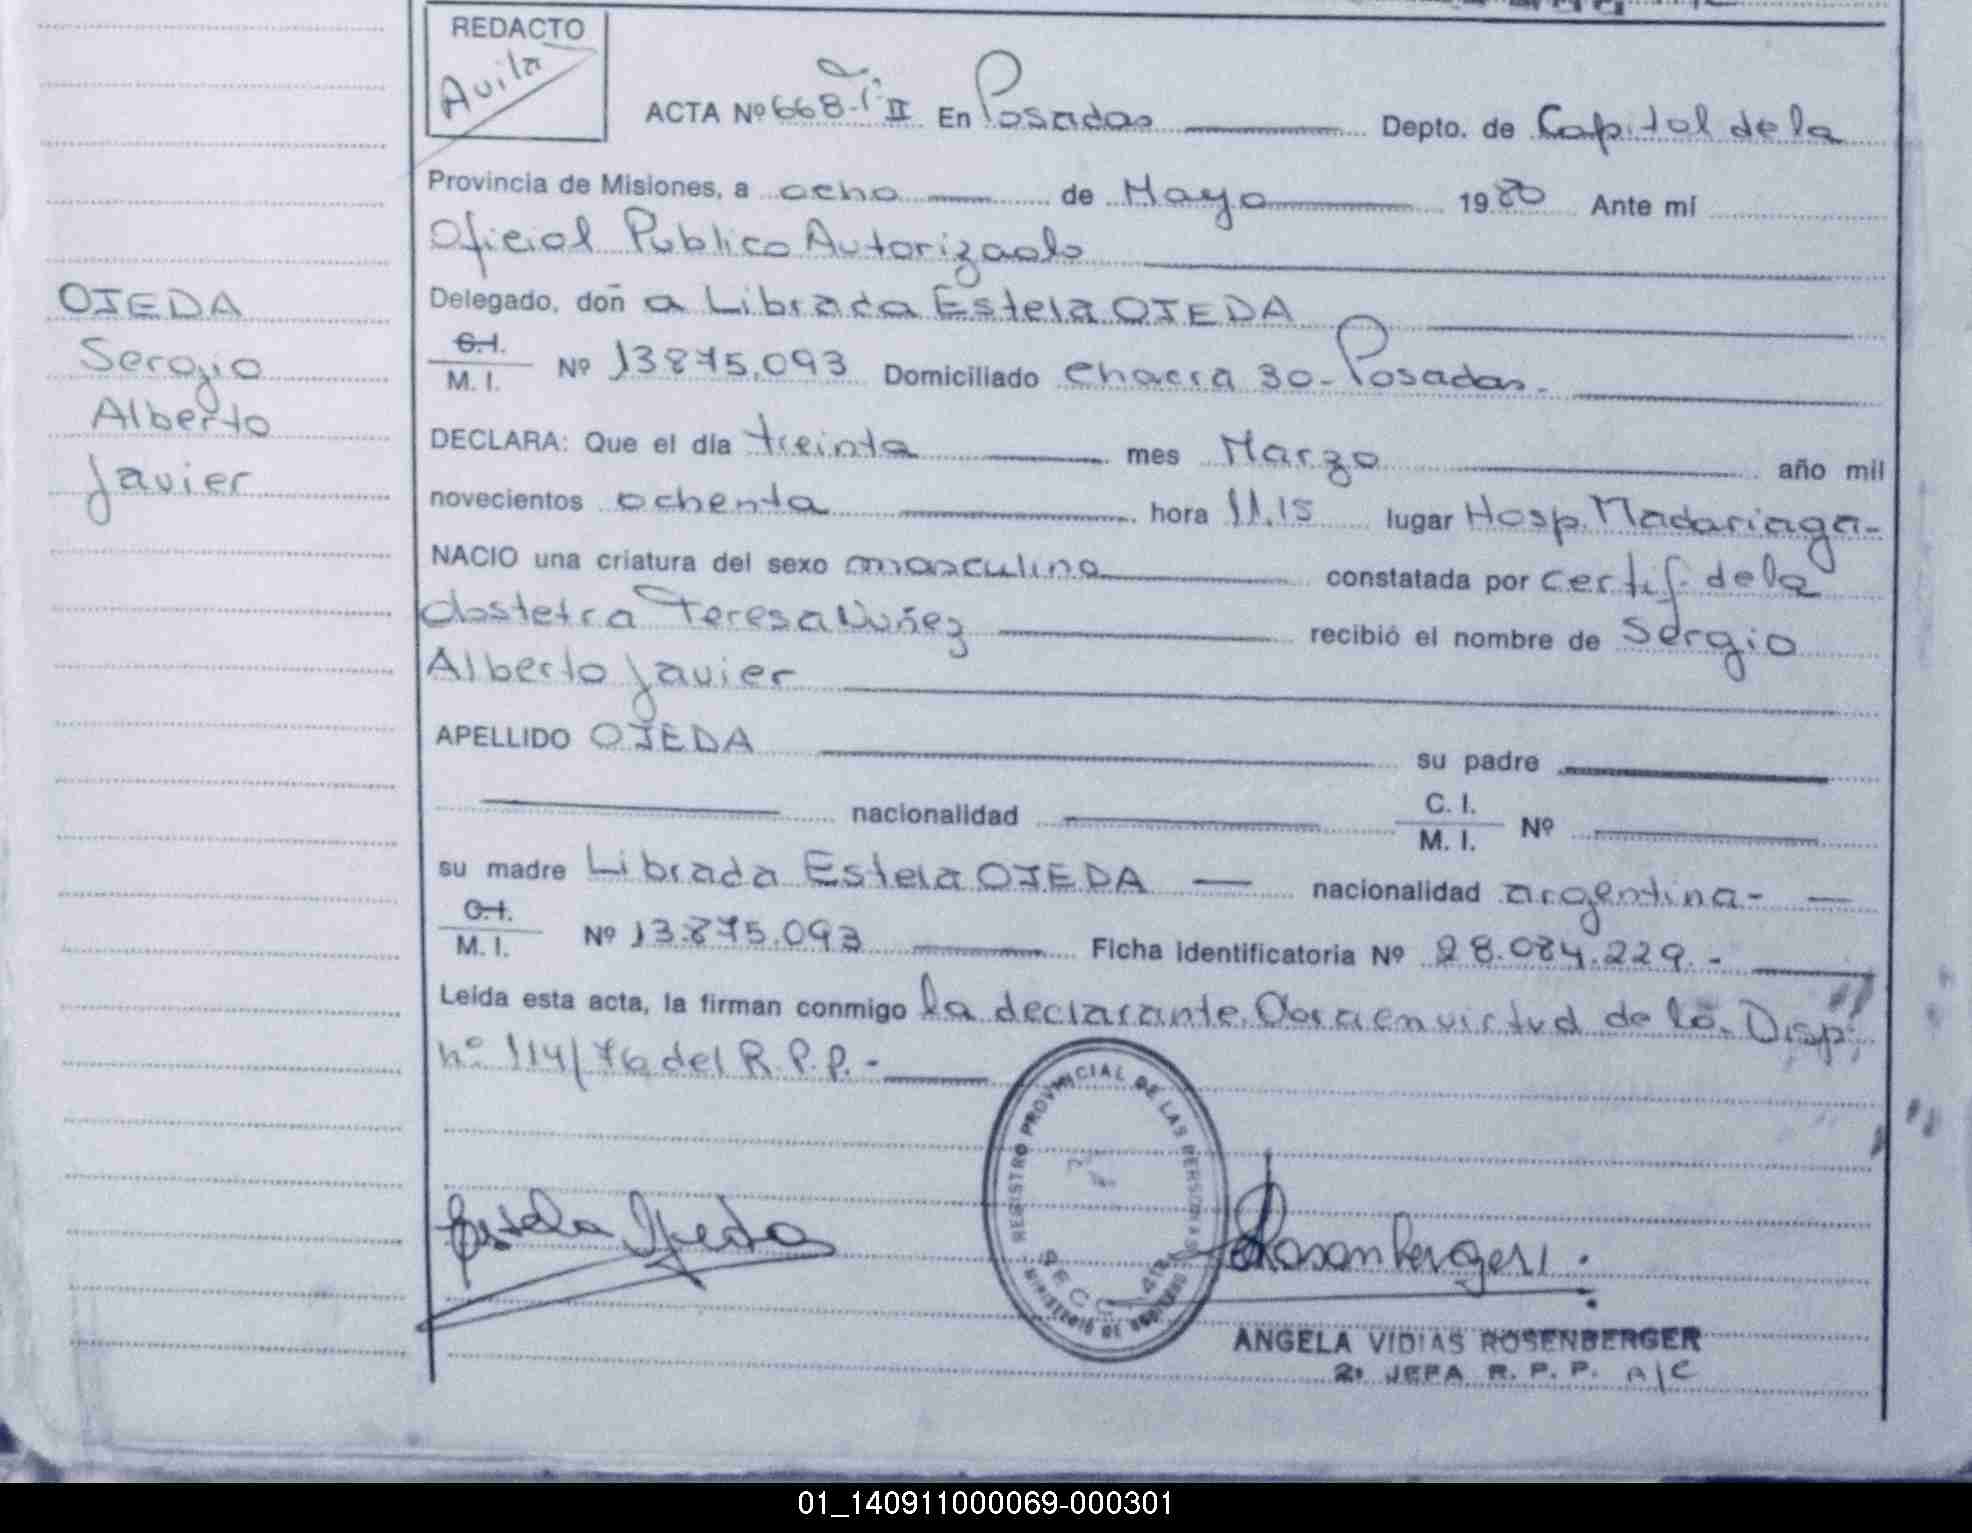 REDACTO
Avila
ACTA Nº 668-Tº II En Posadas Depto. de Capital de la
Provincia de Misiones, a ocho de Mayo 1980 Ante mí
Oficial Publico Autorizado
OJEDA
Sergio
Alberto
Javier
Delegado, doñ a Librada Estela OJEDA
C.I.
M. I. Nº 13875.093 Domiciliado Chacra 30-Posadas-
DECLARA: Que el día treinta mes Marzo año mil
novecientos ochenta hora 11.15 lugar Hosp. Madariaga-
NACIO una criatura del sexo masculino constatada por certif. de la
Obstetra Teresa Nuñez recibió el nombre de Sergio
Alberto Javier
APELLIDO OJEDA su padre
nacionalidad C. I.
M. I. Nº
su madre Librada Estela OJEDA — nacionalidad argentina- —
C.I.
M. I. Nº 13.875.093 Ficha Identificatoria Nº 28.084.229.-
Leída esta acta, la firman conmigo la declarante. Obra en virtud de la Disp.
nº 114/76 del R.P.P.-
REGISTRO PROVINCIAL DE LAS PERSONAS
SECC. 4ta
MINISTERIO DE GOBIERNO
Estela Ojeda
Rosenberger
ANGELA VIDIAS ROSENBERGER
2ª JEFA R. P. P. A/C
01_140911000069-000301